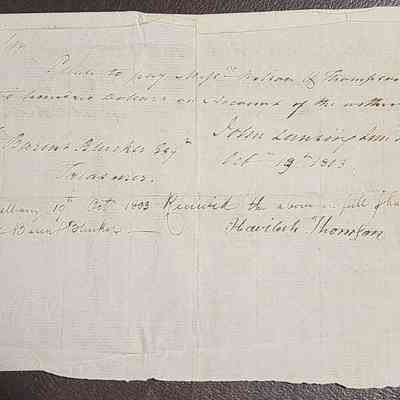 Sir
Please to pay Mess^rs Nelson & Thompson
hundred Dollars on Account of the within
John Lansing Jun^r
Barent Bleecker Esq^r
Oct^r 19^th 1803
Treasurer.
Albany 19^th Oct^r 1803 Received the above in full of
Barent Bleecker
Havilah Thomson